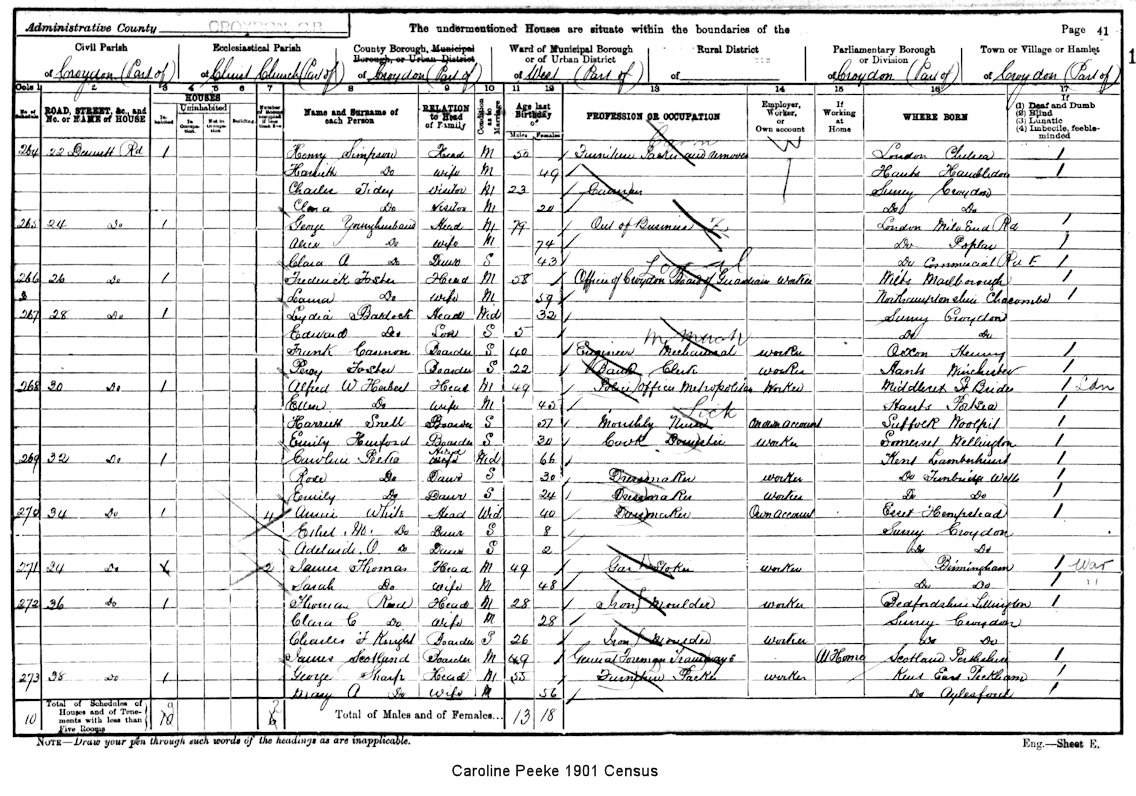 Administrative County CROYDON C.B. The undermentioned Houses are situate within the boundaries of the Page 41
1
Civil Parish Ecclesiastical Parish County Borough, Municipal Borough, or Urban District Ward of Municipal Borough or of Urban District Rural District Parliamentary Borough or Division Town or Village or Hamlet
of Croydon (Part of) of Christ Church (Part of) of Croydon (Part of) of West (Part of) of of Croydon (Part of) of Croydon (Part of)
Cols 1 2 3 4 5 6 7 8 9 10 11 12 13 14 15 16 17
No. of Schedule ROAD, STREET, &c., and No. or NAME of HOUSE HOUSES Inhabited Uninhabited In Occupation Not in Occupation Building Number of Rooms occupied if less than five Name and Surname of each Person RELATION to Head of Family Condition as to Marriage Age last Birthday of Males Females PROFESSION OR OCCUPATION Employer, Worker, or Own account If Working at Home WHERE BORN If (1) Deaf and Dumb (2) Blind (3) Lunatic (4) Imbecile, feeble-minded
264 22 Rd 1 Henry Simpson Head M 50 Furniture Packer and Remover London Chelsea
Do Wife M 49 Hants Hambledon
Charles Tidey Visitor M 23 Carman Surrey Croydon
Clara Do Visitor M 20 Do Do
265 24 Do 1 George Younghusband Head M 79 Out of Business London Mile End Rd
Do Wife M 74 Do Poplar
Clara A Do Daur S 43 Do Commercial Rd E
266 26 Do 1 Frederick Foster Head M 58 Officer of Croydon Board of Guardians Worker Wilts Marlborough
Do Wife M 59 Northamptonshire Chacombe
267 28 Do 1 Lydia Head Wid 32 Surrey Croydon
Edward Do Son S 5 Do Do
Frank Cannon Boarder S 40 Engineer Mechanical Worker Oxon Henley
Percy Foster Boarder S 22 Bank Clerk Worker Hants Winchester
268 30 Do 1 Alfred W Herbert Head M 49 Police Officer Metropolitan Worker Middlesex St Brides Ldn
Ellen Do Wife M 45 Hants Portsea
Harriett Snell Boarder S 57 Monthly Nurse Own account Suffolk Woolpit
Emily Boarder S 30 Cook Domestic Worker Somerset Wellington
269 32 Do 1 Caroline Peeke Head Wid 66 Kent Lamberhurst
Rose Do Daur S 30 Dressmaker Worker Do Tunbridge Wells
Emily Do Daur S 24 Dressmaker Worker Do Do
270 34 Do 1 4 Annie White Head Wid 40 Dressmaker Own Account Essex Hempstead
Ethel M. Do Daur S 8 Surrey Croydon
Adelaide. O. Do Daur S 2 Do Do
271 34 Do 2 James Thomas Head M 49 Gas Stoker Worker Birmingham War
Sarah Do Wife M 48 Do Do "
272 36 Do 1 Thomas Reed Head M 28 Iron Moulder Worker Bedfordshire
Clara E Do Wife M 28 Surrey Croydon
Charles F Knight Boarder S 26 Iron Moulder Worker Do Do
James Scotland Boarder M 49 General Foreman Tramways At Home Scotland Perthshire
273 38 Do 1 George Sharp Head M 55 Furniture Packer Worker Kent East Peckham
Mary A Do Wife M 56 Do Aylesford
10 Total of Schedules of Houses and of Tenements with less than Five Rooms Total of Males and of Females... 13 18
NOTE—Draw your pen through such words of the headings as are inapplicable. Eng.—Sheet E.
Caroline Peeke 1901 Census